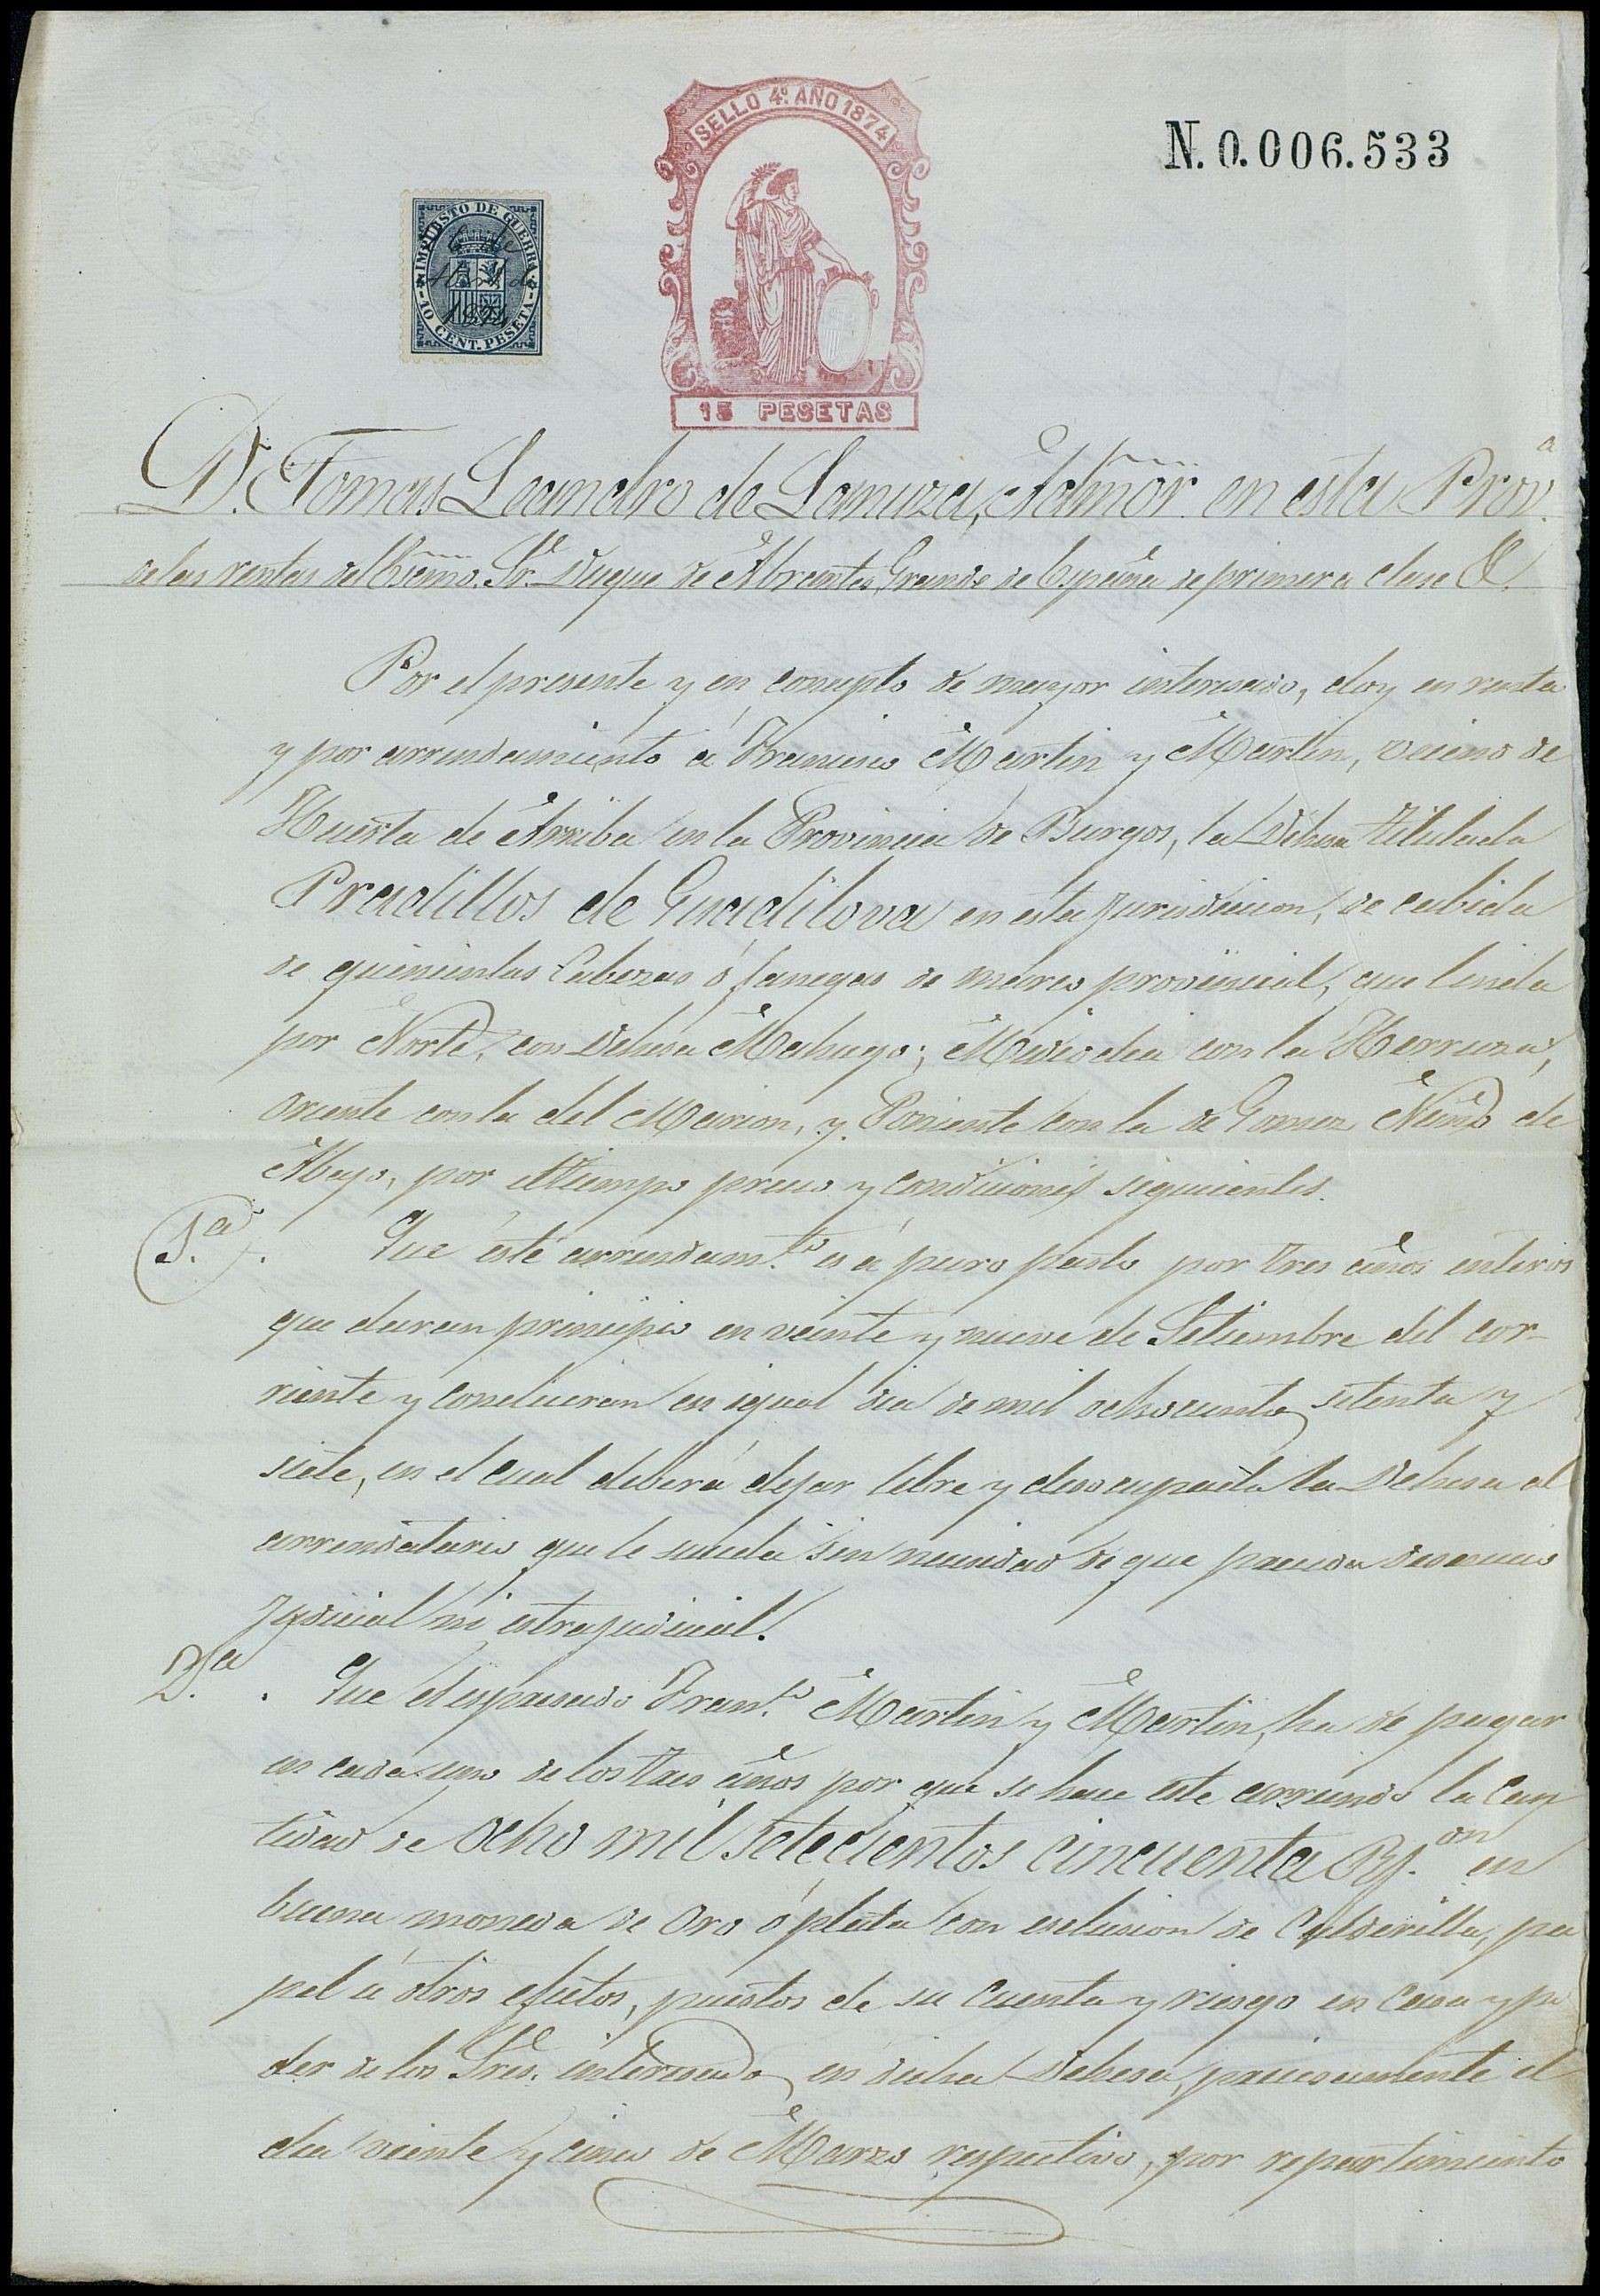 SELLO 4º. AÑO 1874
N. 0.006.533
IMPUESTO DE GUERRA
1874
10 CENT. PESETA
15 PESETAS
D. Tomas Leandro de Lanuza, Admōr. en esta Provª.
de las rentas del Excmo. Sr. Duque de Abrantes, Grande de España de primera clase &.
Por el presente y en concepto de mayor interesado, doy en renta
y por arrendamiento á Francisco Martin y Martin, vecino de
Huerta de Arriba en la Provincia de Burgos, la Dehesa titulada
Pradillos de Guadilova en esta jurisdicion, de cabida
de quinientas Cabezas ó fanegas de marco provincial, que linda
por Norte, con Dehesa Machugo; Mediodia con la Herruza,
Oriente con la del Marion, y Poniente con la de Gomez Nuño de
Abajo, por el tiempo precio y condiciones siguientes.
1.ª Que éste arrendam.to es á puro pasto por tres años enteros
que daran principio en veinte y nueve de Setiembre del cor-
riente y concluiran en igual dia de mil ochocientos setenta y
siete, en el cual deberá dejar libre y desocupada la Dehesa al
arrendatario que le suceda sin necesidad de que preceda desaucio
Judicial ni estrajudicial.
2.ª Que el espresado Fran.co Martin y Martin, ha de pagar
en cada uno de los tres años por que se hace este arriendo la Can
tidad de ocho mil setecientos cincuenta Rs.on en
buena moneda de Oro ó plata con esclusion de Calderilla, pa
pel ú otros efectos, puestos de su cuenta y riesgo en Casa y po
der de los Sres. interesados en dicha Dehesa, precisamente el
dia veinte y cinco de Marzo respectivo, por repartimiento